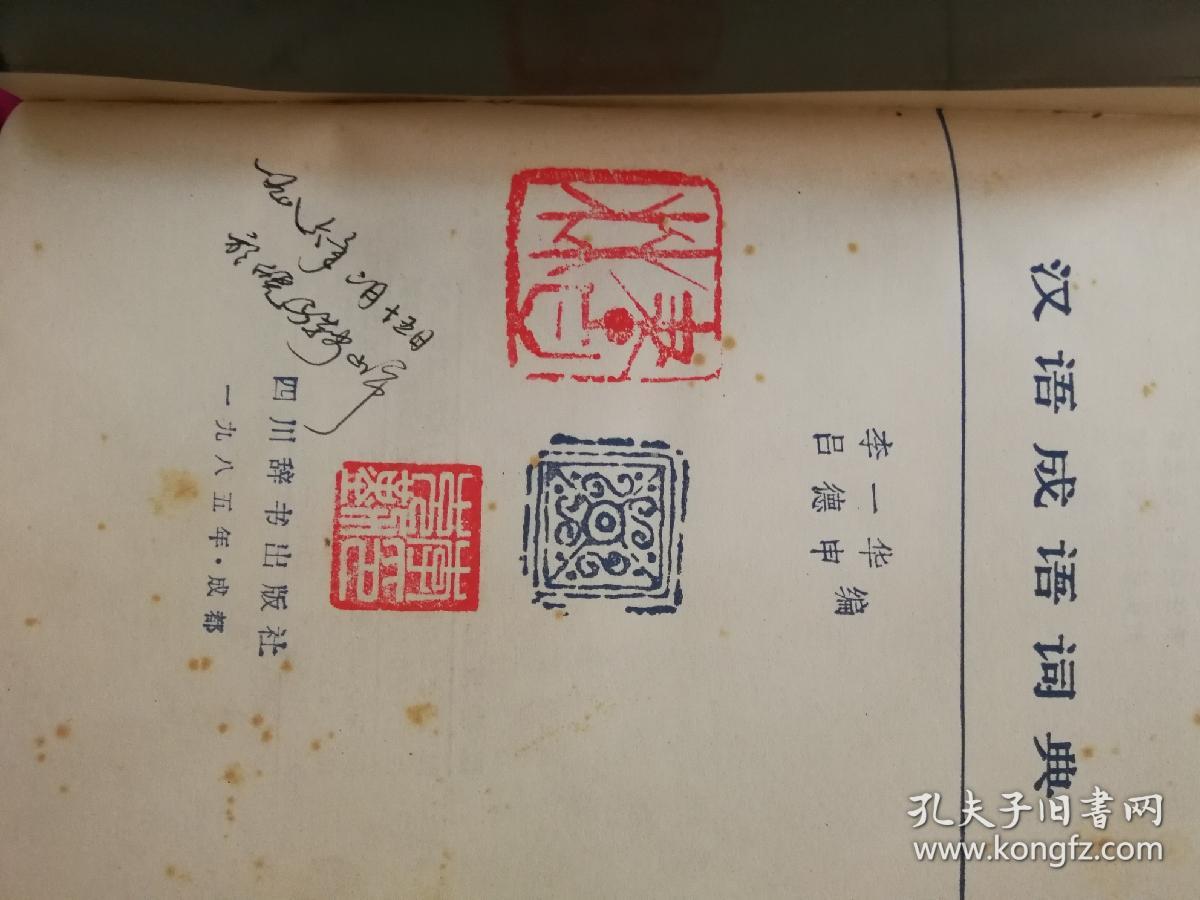 汉语成语词典
李一华
吕德申 编
四川辞书出版社
一九八五年·成都
孔夫子旧书网
www.kongfz.com